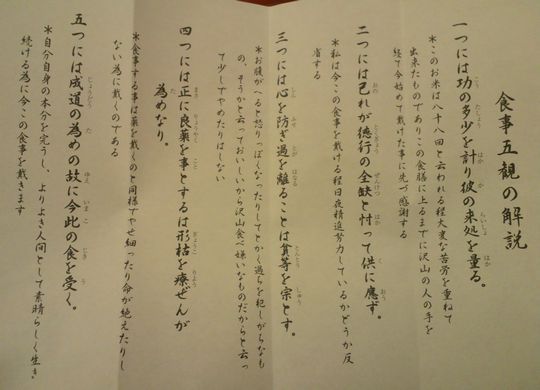 食事五観の解説
一つには功の多少を計り彼の来処を量る。
＊このお米は八十八回と云われる程大変な苦労を重ねて
出来たものでありこの食膳に上るまでに沢山の人の手を
経て今始めて戴けた事に先づ感謝する
二つには己れが徳行の全缺と忖って供に應ず。
＊私は今この食事を戴ける程日夜精進努力しているかどうか反
省する
三つには心を防ぎ過を離るることは貧等を宗とす。
＊お腹がへると怒りっぽくなったりしてとかく過ちを犯しがちなも
の、そうかと云っておいしいから沢山食べ嫌いなものだからと云っ
て少しでやめたりはしない
四つには正に良薬を事とするは形枯を療ぜんが
為めなり。
＊食事する事は薬を戴くのと同様でやせ細ったり命が絶えたりし
ない為に戴くのである
五つには成道の為めの故に今此の食を受く。
＊自分自身の本分を完うし、よりよき人間として素晴らしく生き
続ける為に今この食事を戴きます